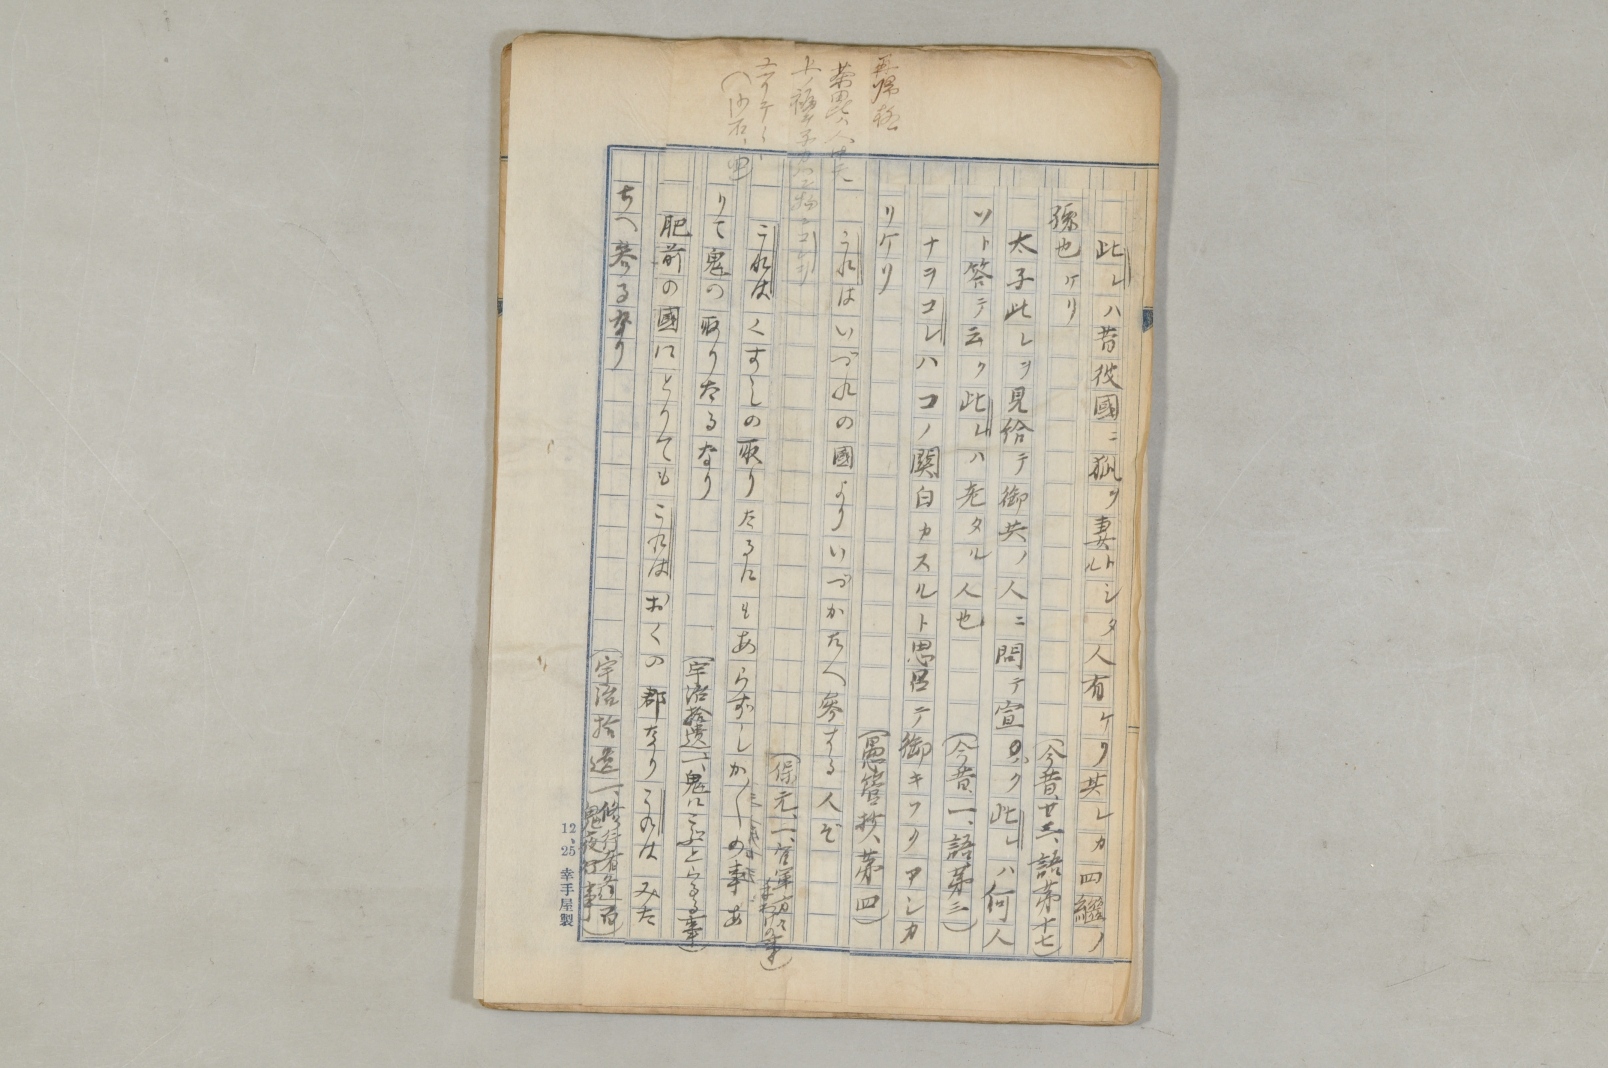 此レハ昔彼國ニ狐ヲ妻トシタル人有ケリ其レカ四繼ノ
孫也ケリ
(今昔、廿三、語第十七)
太子此レヲ見給テ御共ノ人ニ問テ宣ハク此レハ何人
ソト答テ云ク此レハ老タル人也
(今昔、一、語第三)
ナヲコレハコノ関白カスルト思召テ御キソクアシカ
リケリ
(愚管抄、第四)
これはいづれの國よりいづかたへ參する人ぞ
(保元、一、官軍
これはくすしの取りたるにもあらずしか〲の事あ
りて鬼の取りたるなり
(宇治拾遺一、鬼にこぶとらるる事)
肥前の國にとりてもこれはおくの郡なりこれはみた
ちへ參るなり
(宇治拾遺一、修行者逢百鬼夜行事)
12、25 幸手屋製